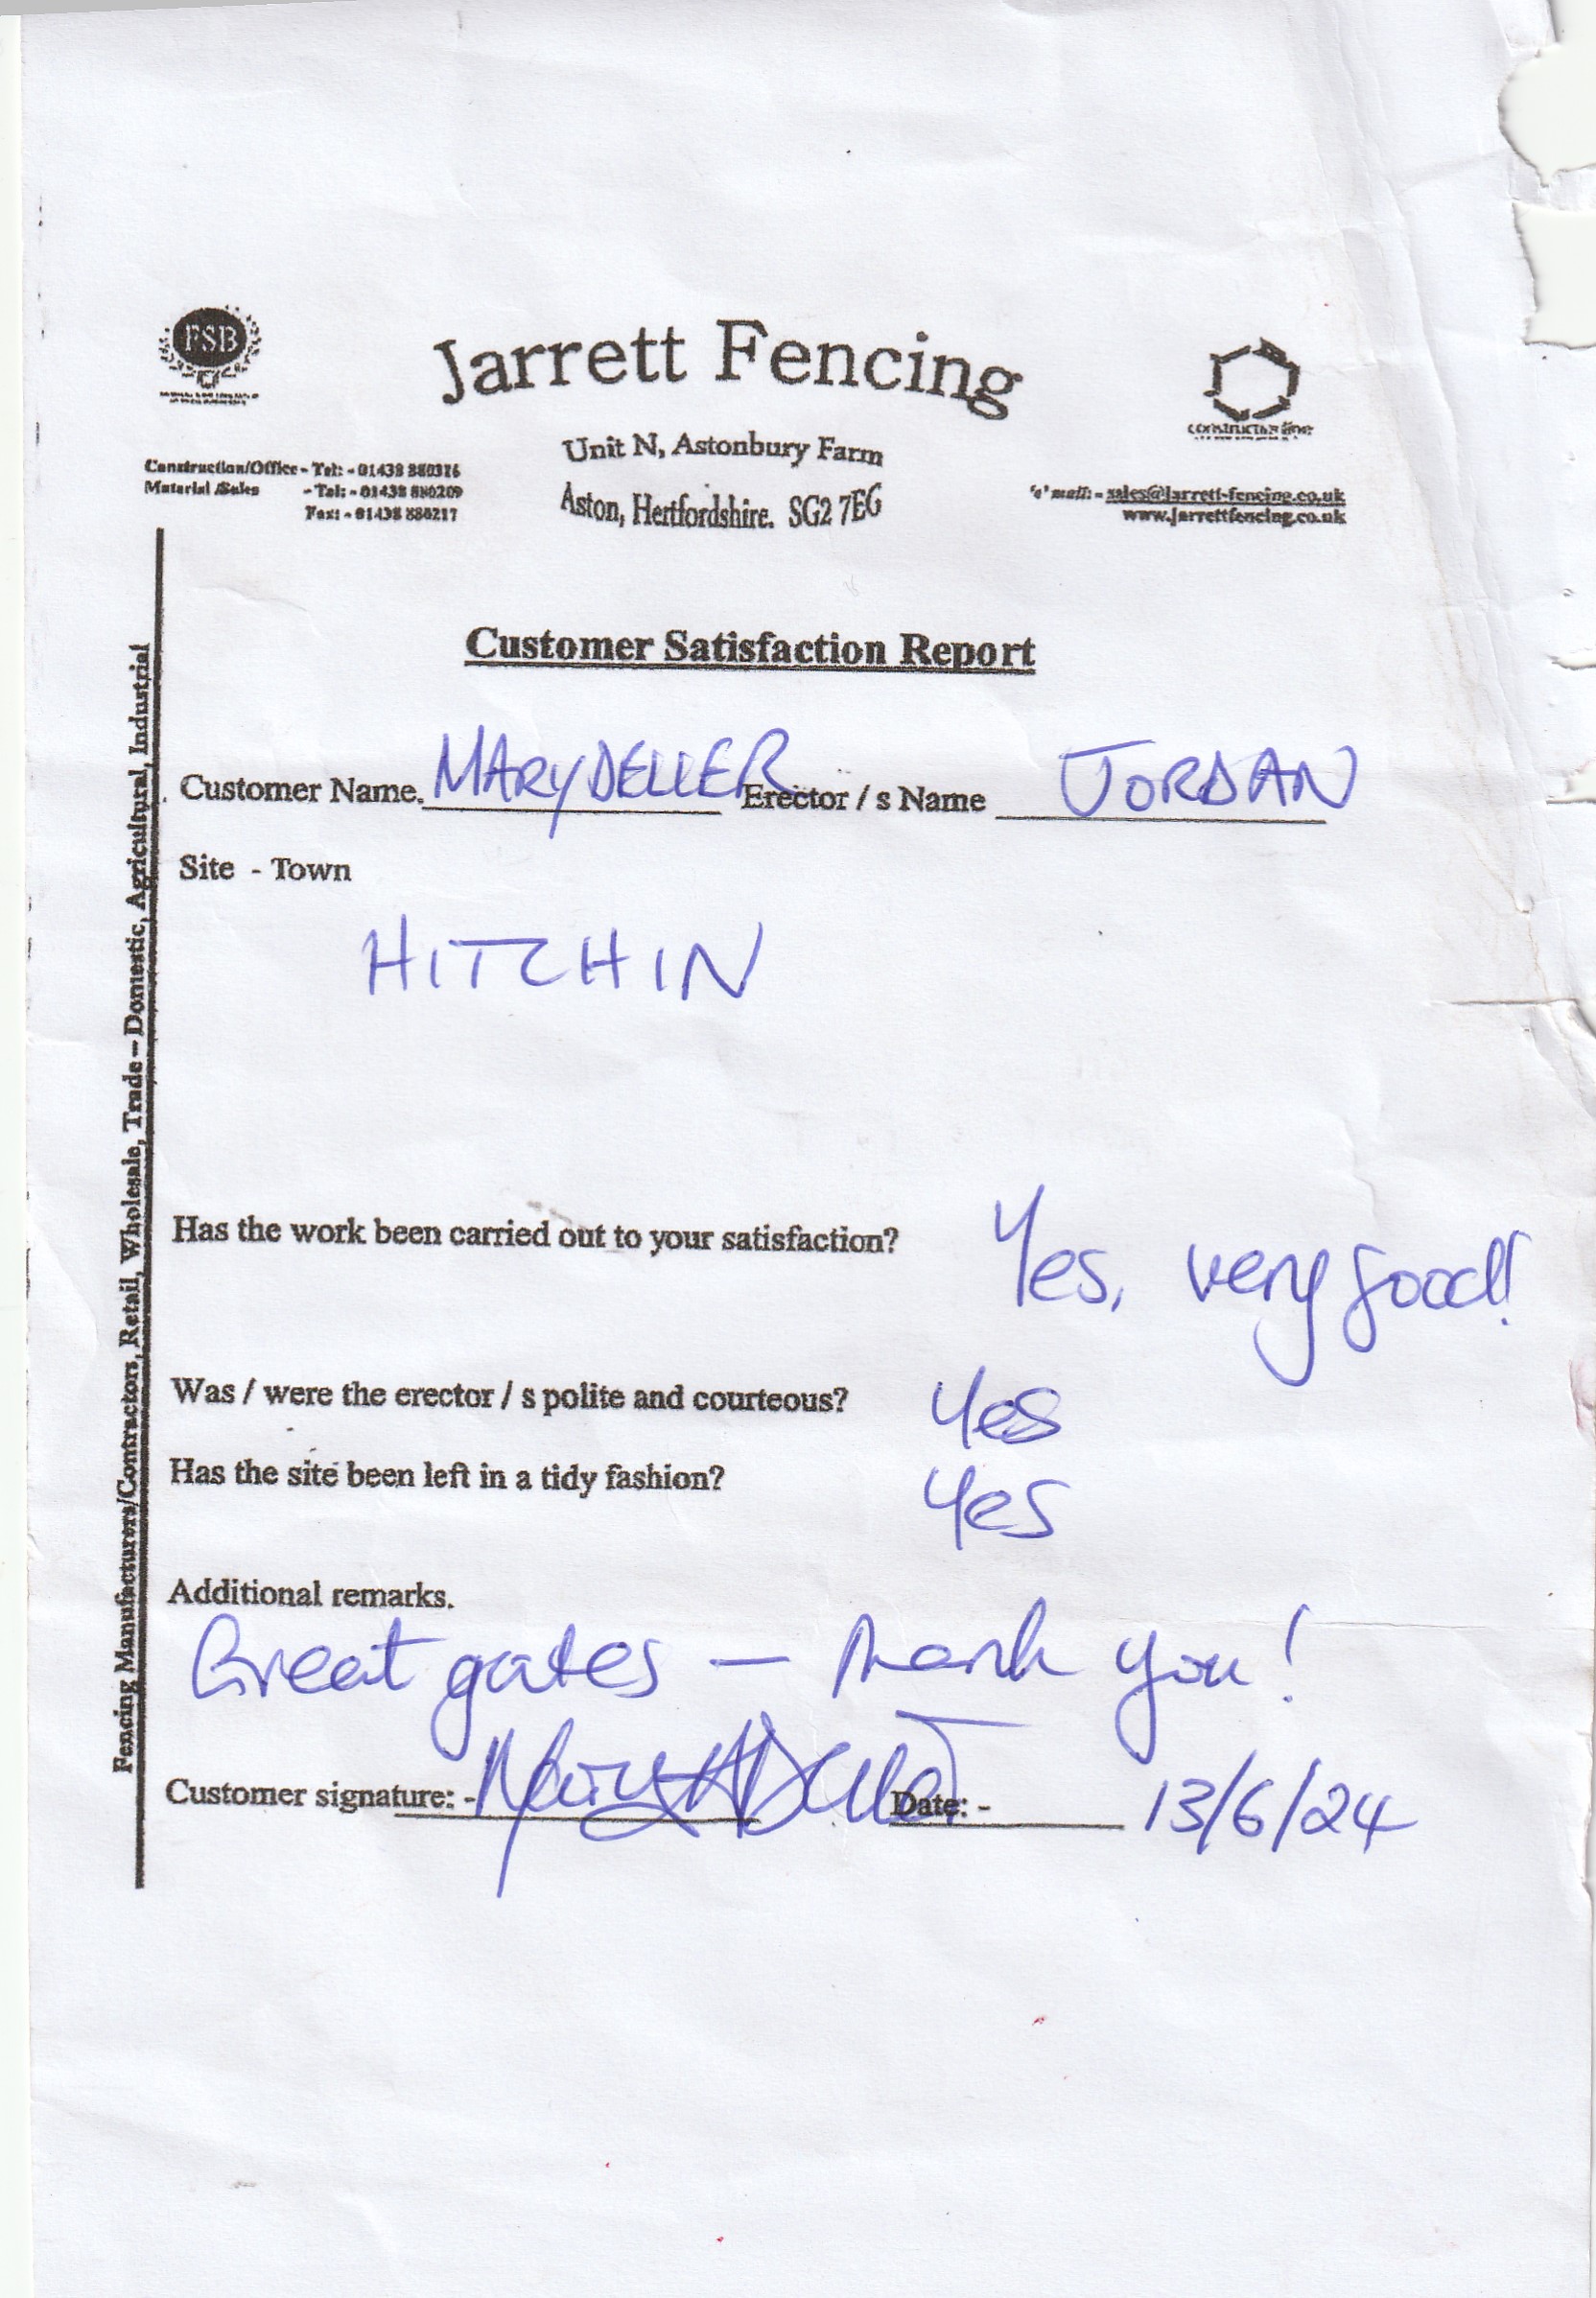 FSB
Jarrett Fencing
constructionline
Unit N, Astonbury Farm
Aston, Hertfordshire. SG2 7EG
Construction/Office - Tel: - 01438 880316
Material /Sales - Tel: - 01438 880209
Fax: - 01438 880217
'e' mail: - sales@jarrett-fencing.co.uk
www.jarrettfencing.co.uk
Fencing Manufacturers/Contractors, Retail, Wholesale, Trade – Domestic, Agricultural, Industrial
Customer Satisfaction Report
Customer Name. MARY DELLER Erector / s Name JORDAN
Site - Town
HITCHIN
Has the work been carried out to your satisfaction? Yes, very good!
Was / were the erector / s polite and courteous? Yes
Has the site been left in a tidy fashion? Yes
Additional remarks.
Great gates – thank you!
Customer signature: - Date: - 13/6/24